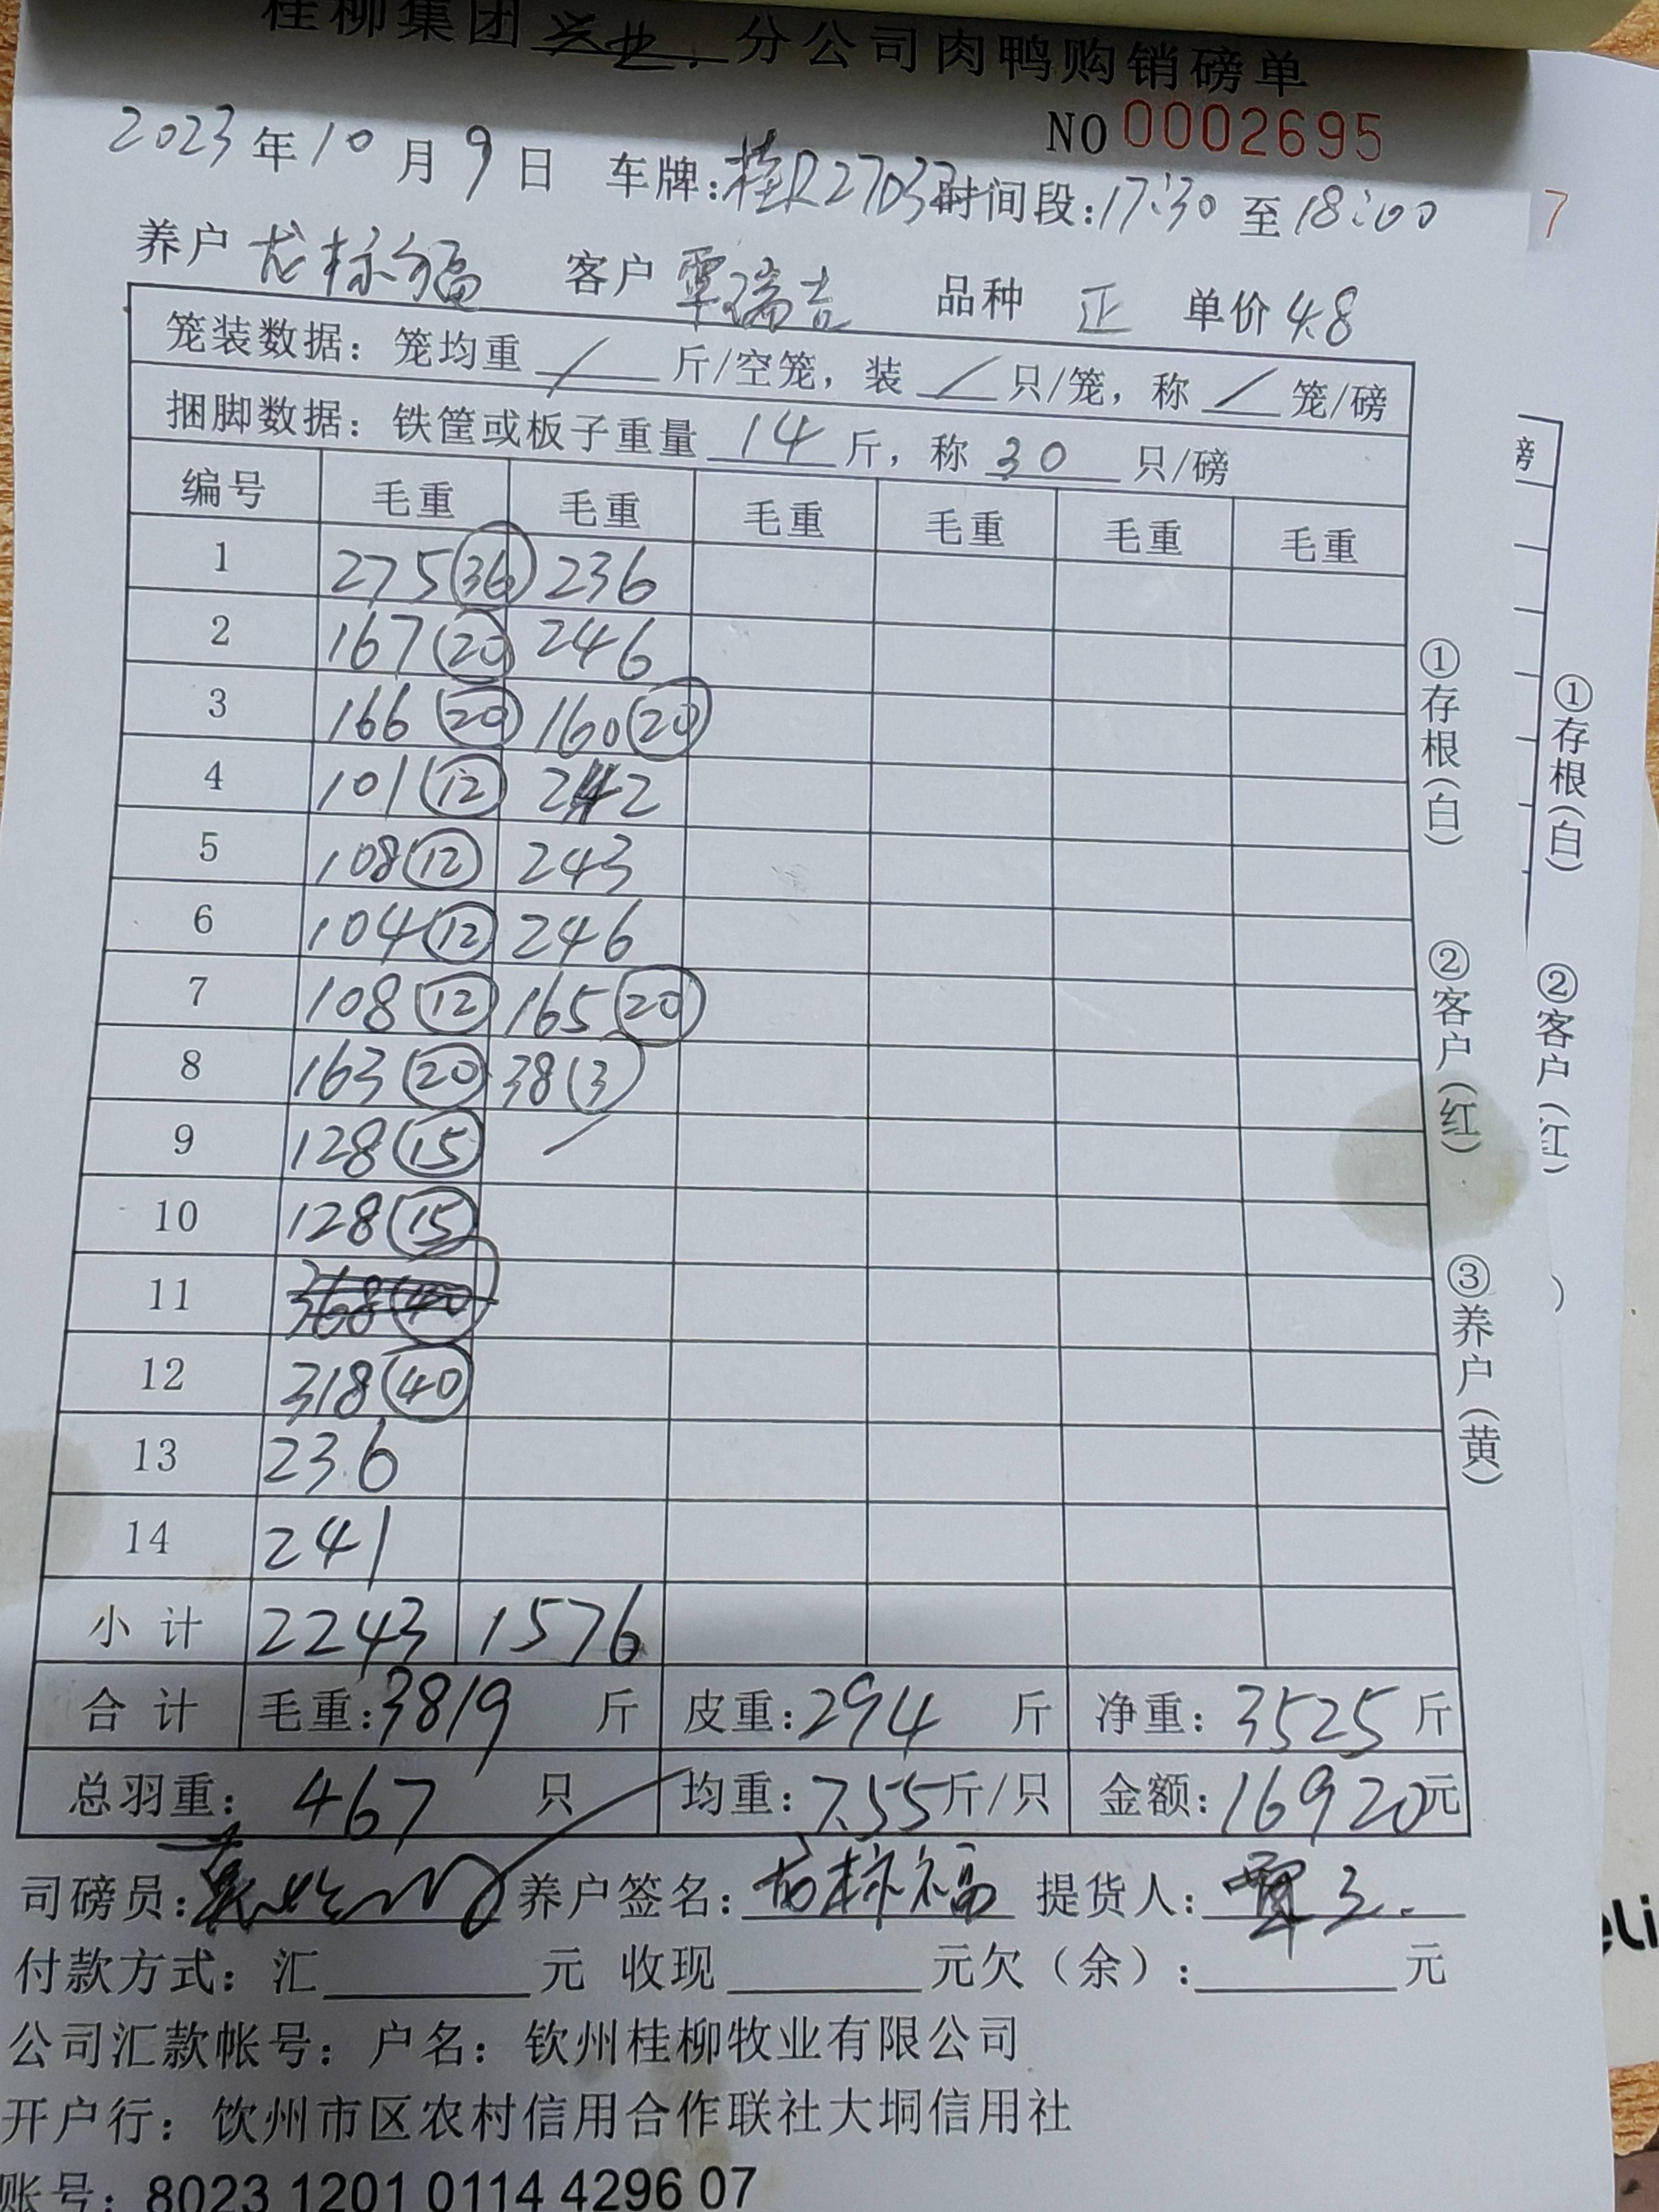 桂柳集团兴业分公司肉鸭购销磅单
NO 0002695
2023年10月9日 车牌:桂R27033 时间段:17:30至18:00
养户 龙标福 客户 覃瑞吉 品种 正 单价 4.8
笼装数据:笼均重 / 斤/空笼,装 / 只/笼,称 / 笼/磅
捆脚数据:铁筐或板子重量 14 斤,称 30 只/磅
编号 毛重 毛重 毛重 毛重 毛重 毛重
1 275(36) 236
2 167(20) 246
3 166(20) 160(20)
4 101(12) 242
5 108(12) 243
6 104(12) 246
7 108(12) 165(20)
8 163(20) 38(3)
9 128(15) /
10 128(15)
11
12 318(40)
13 236
14 241
小计 2243 1576
合计 毛重:3819 斤 皮重:294 斤 净重:3525 斤
总羽重:467 只 均重:7.55斤/只 金额:16920元
司磅员: 养户签名:龙标福 提货人:覃
付款方式:汇 元 收现 元欠(余): 元
公司汇款帐号:户名:钦州桂柳牧业有限公司
开户行:饮州市区农村信用合作联社大垌信用社
账号:8023 1201 0114 4296 07
①存根(白)
②客户(红)
③养户(黄)
7
磅
①存根(白)
②客户(红)
eli